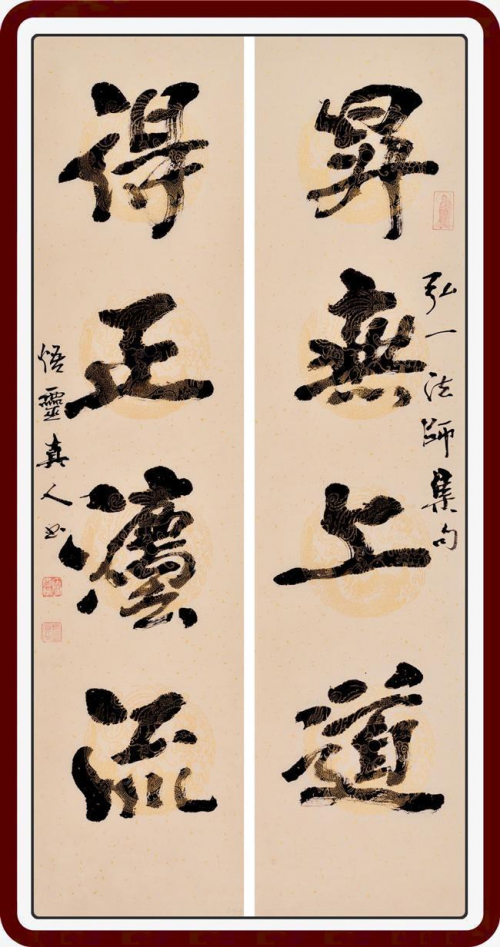 弘一法師集句
昇無上道
得正灋流
悟靈真人書